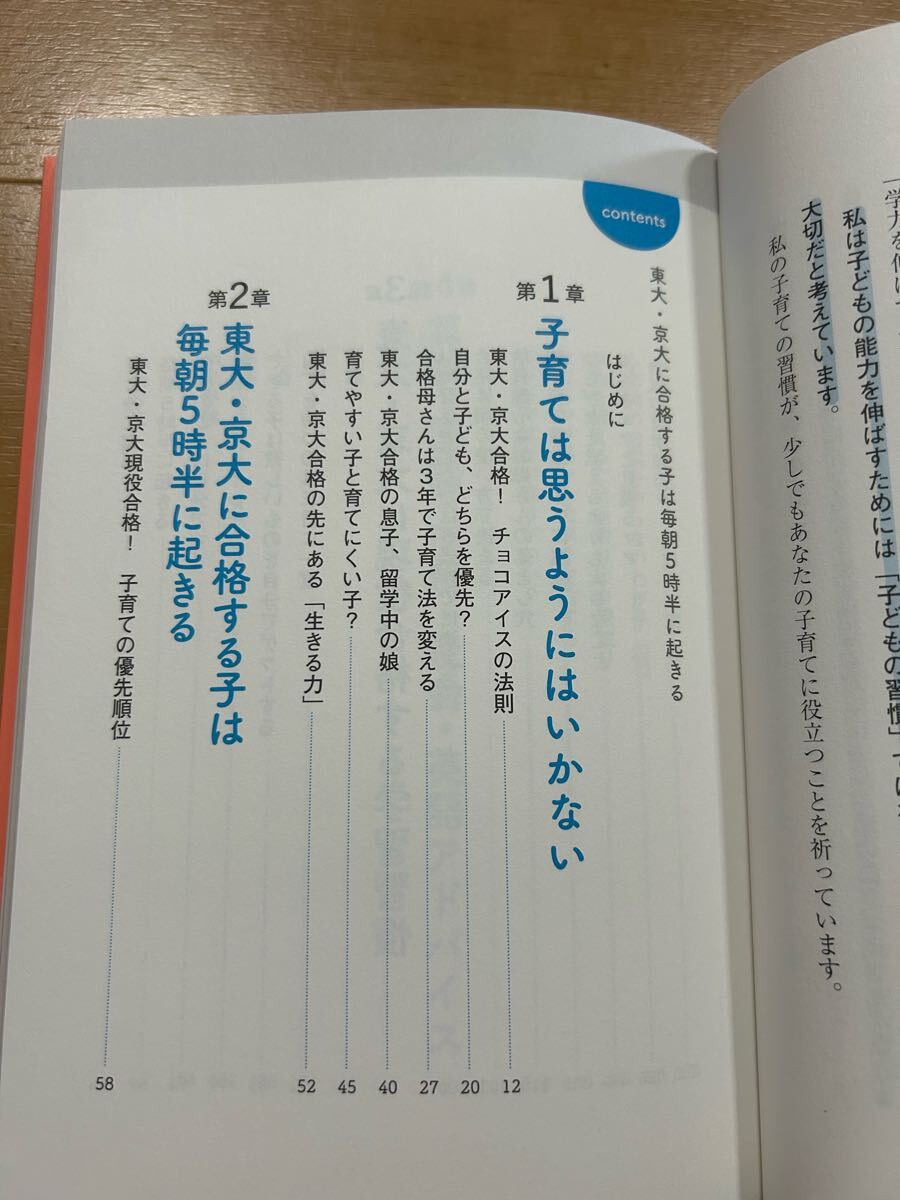 「学力を伸
私は子どもの能力を伸ばすためには「子どもの習慣」
大切だと考えています。
私の子育ての習慣が、少しでもあなたの子育てに役立つことを祈っています。
contents
東大・京大に合格する子は毎朝5時半に起きる
はじめに
第1章
子育ては思うようにはいかない
東大・京大合格! チョコアイスの法則 12
自分と子ども、どちらを優先? 20
合格母さんは3年で子育て法を変える 27
東大・京大合格の息子、留学中の娘 40
育てやすい子と育てにくい子? 45
東大・京大合格の先にある「生きる力」 52
第2章
東大・京大に合格する子は
毎朝5時半に起きる
東大・京大現役合格! 子育ての優先順位 58